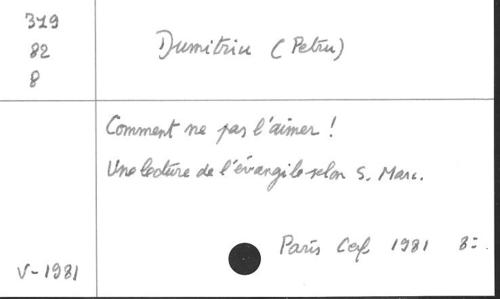 319
82
8
Dumitriu (Petru)
Comment ne pas l'aimer !
Une lecture de l'évangile selon S. Marc.
Paris Cerf 1981 8º.
V-1981